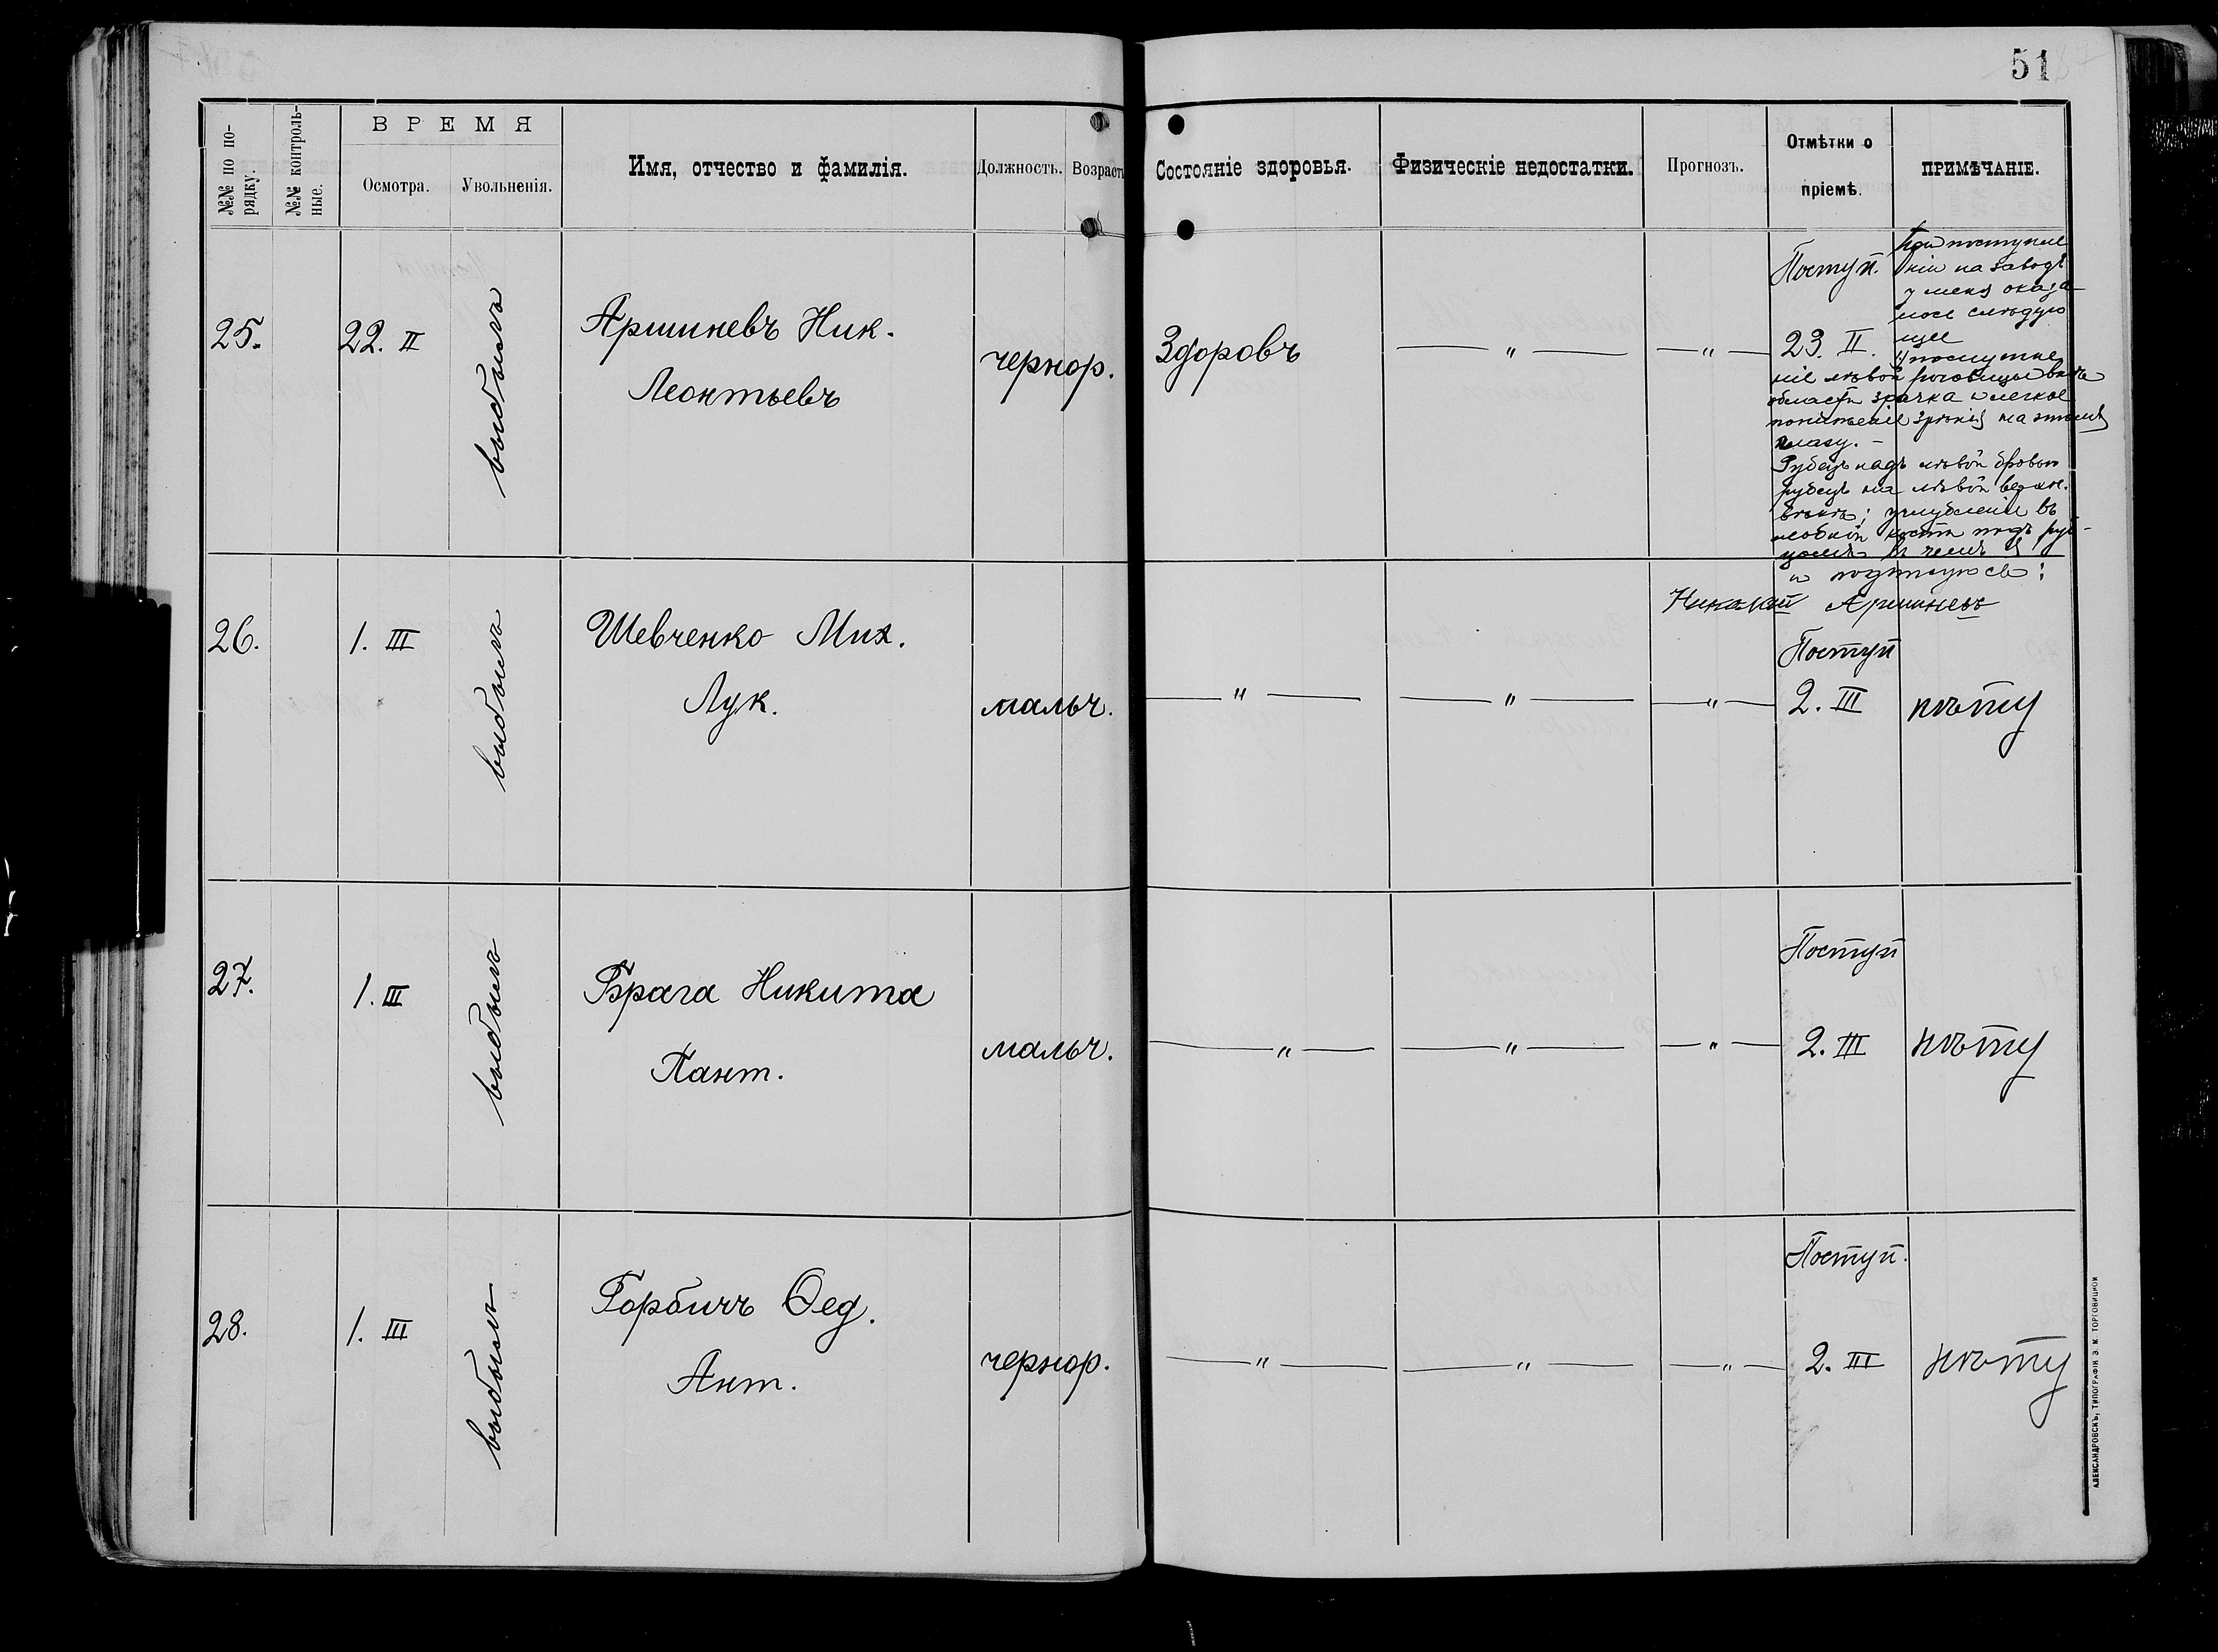 51
№№ по по-
рядку.
№№ контроль-
ные.
ВРЕМЯ
Осмотра.
Увольненія.
Имя, отчество и фамилія.
Должность.
Возрастъ
Состояніе здоровья.
Физическіе недостатки.
Прогнозъ.
Отмѣтки о
пріемѣ.
ПРИМѢЧАНІЕ.
25.
22. II
выбылъ
Аршиневъ Ник.
Леонтьевъ
чернор.
Здоровъ
— " —
— " —
Поступ.
23. II.
При поступле
ніи на заводъ
у меня оказа-
лось слѣдую
щее
1) помутне
ніе лѣвой роговицы внѣ
области зрачка и легкое
пониженіе зрѣнія на этомъ
глазу. —
Рубецъ надъ лѣвой бровью
рубецъ на лѣвой верхн.
вѣкѣ; углубленіе въ
лобной кости подъ руб-
цомъ въ чемъ я
и подписуюсь:
Николай Аршиневъ
26.
1. III
выбылъ
Шевченко Мих.
Лук.
мальч.
— " —
— " —
— " —
Поступ
2. III
нѣту
27.
1. III
выбылъ
Брага Никита
Пант.
мальч.
— " —
— " —
— " —
Поступ
2. III
нѣту
28.
1. III
выбылъ
Горбичъ Ѳед.
Ант.
чернор.
— " —
— " —
— " —
Поступ.
2. III
нѣту
АЛЕКСАНДРОВСКЪ, ТИПОГРАФІЯ Э. К. ТОРГОВИЦКОЙ